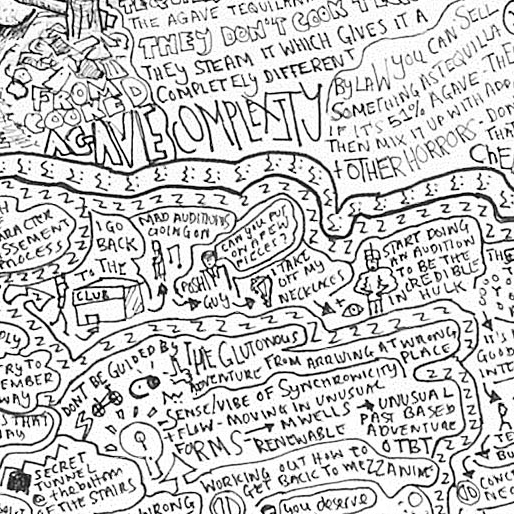 THE AGAVE TEQUILANA
THEY DON'T COOK
THEY STEAM IT WHICH GIVES IT A
COMPLETELY DIFFERENT
COMPLEXITY
FROM
COOKED
AGAVE
BY LAW YOU CAN SELL
SOMETHING AS TEQUILLA
IF IT'S 51% AGAVE - THE
THEN MIX IT UP WITH ADD
+ OTHER HORRORS
DON
THA
CHE
CHARACTER
ASSESSMENT
PROCESS
I GO
BACK
TO THE
CLUB
MAD AUDITIONS
GOING ON
POSH
GUY
CAN YOU PUT
ON A FEW
PIECES?
I TAKE
OFF MY
NECKLACES
START DOING
AN AUDITION
TO BE THE
INCREDIBLE
HULK
THE
IT'S
GOOD
INTE
PLY
TRY TO
REMEMBER
WAY
IS THAT
WAY
DON'T BE GUIDED BY
THE GLUTONOUS
ADVENTURE FROM ARRIVING AT WRONG
PLACE
SENSE/VIBE OF SYNCHRONICITY
+ FLOW - MOVING IN UNUSUAL
FORMS → M WELLS → UNUSUAL
RENEWABLE
PAST BASED
ADVENTURE
OTBT
SECRET
TUNNEL
@ the bottom
OF THE STAIRS
WORKING OUT HOW TO
GET BACK TO MEZZANINE
WRONG
you deserve
BU
CONC
NE